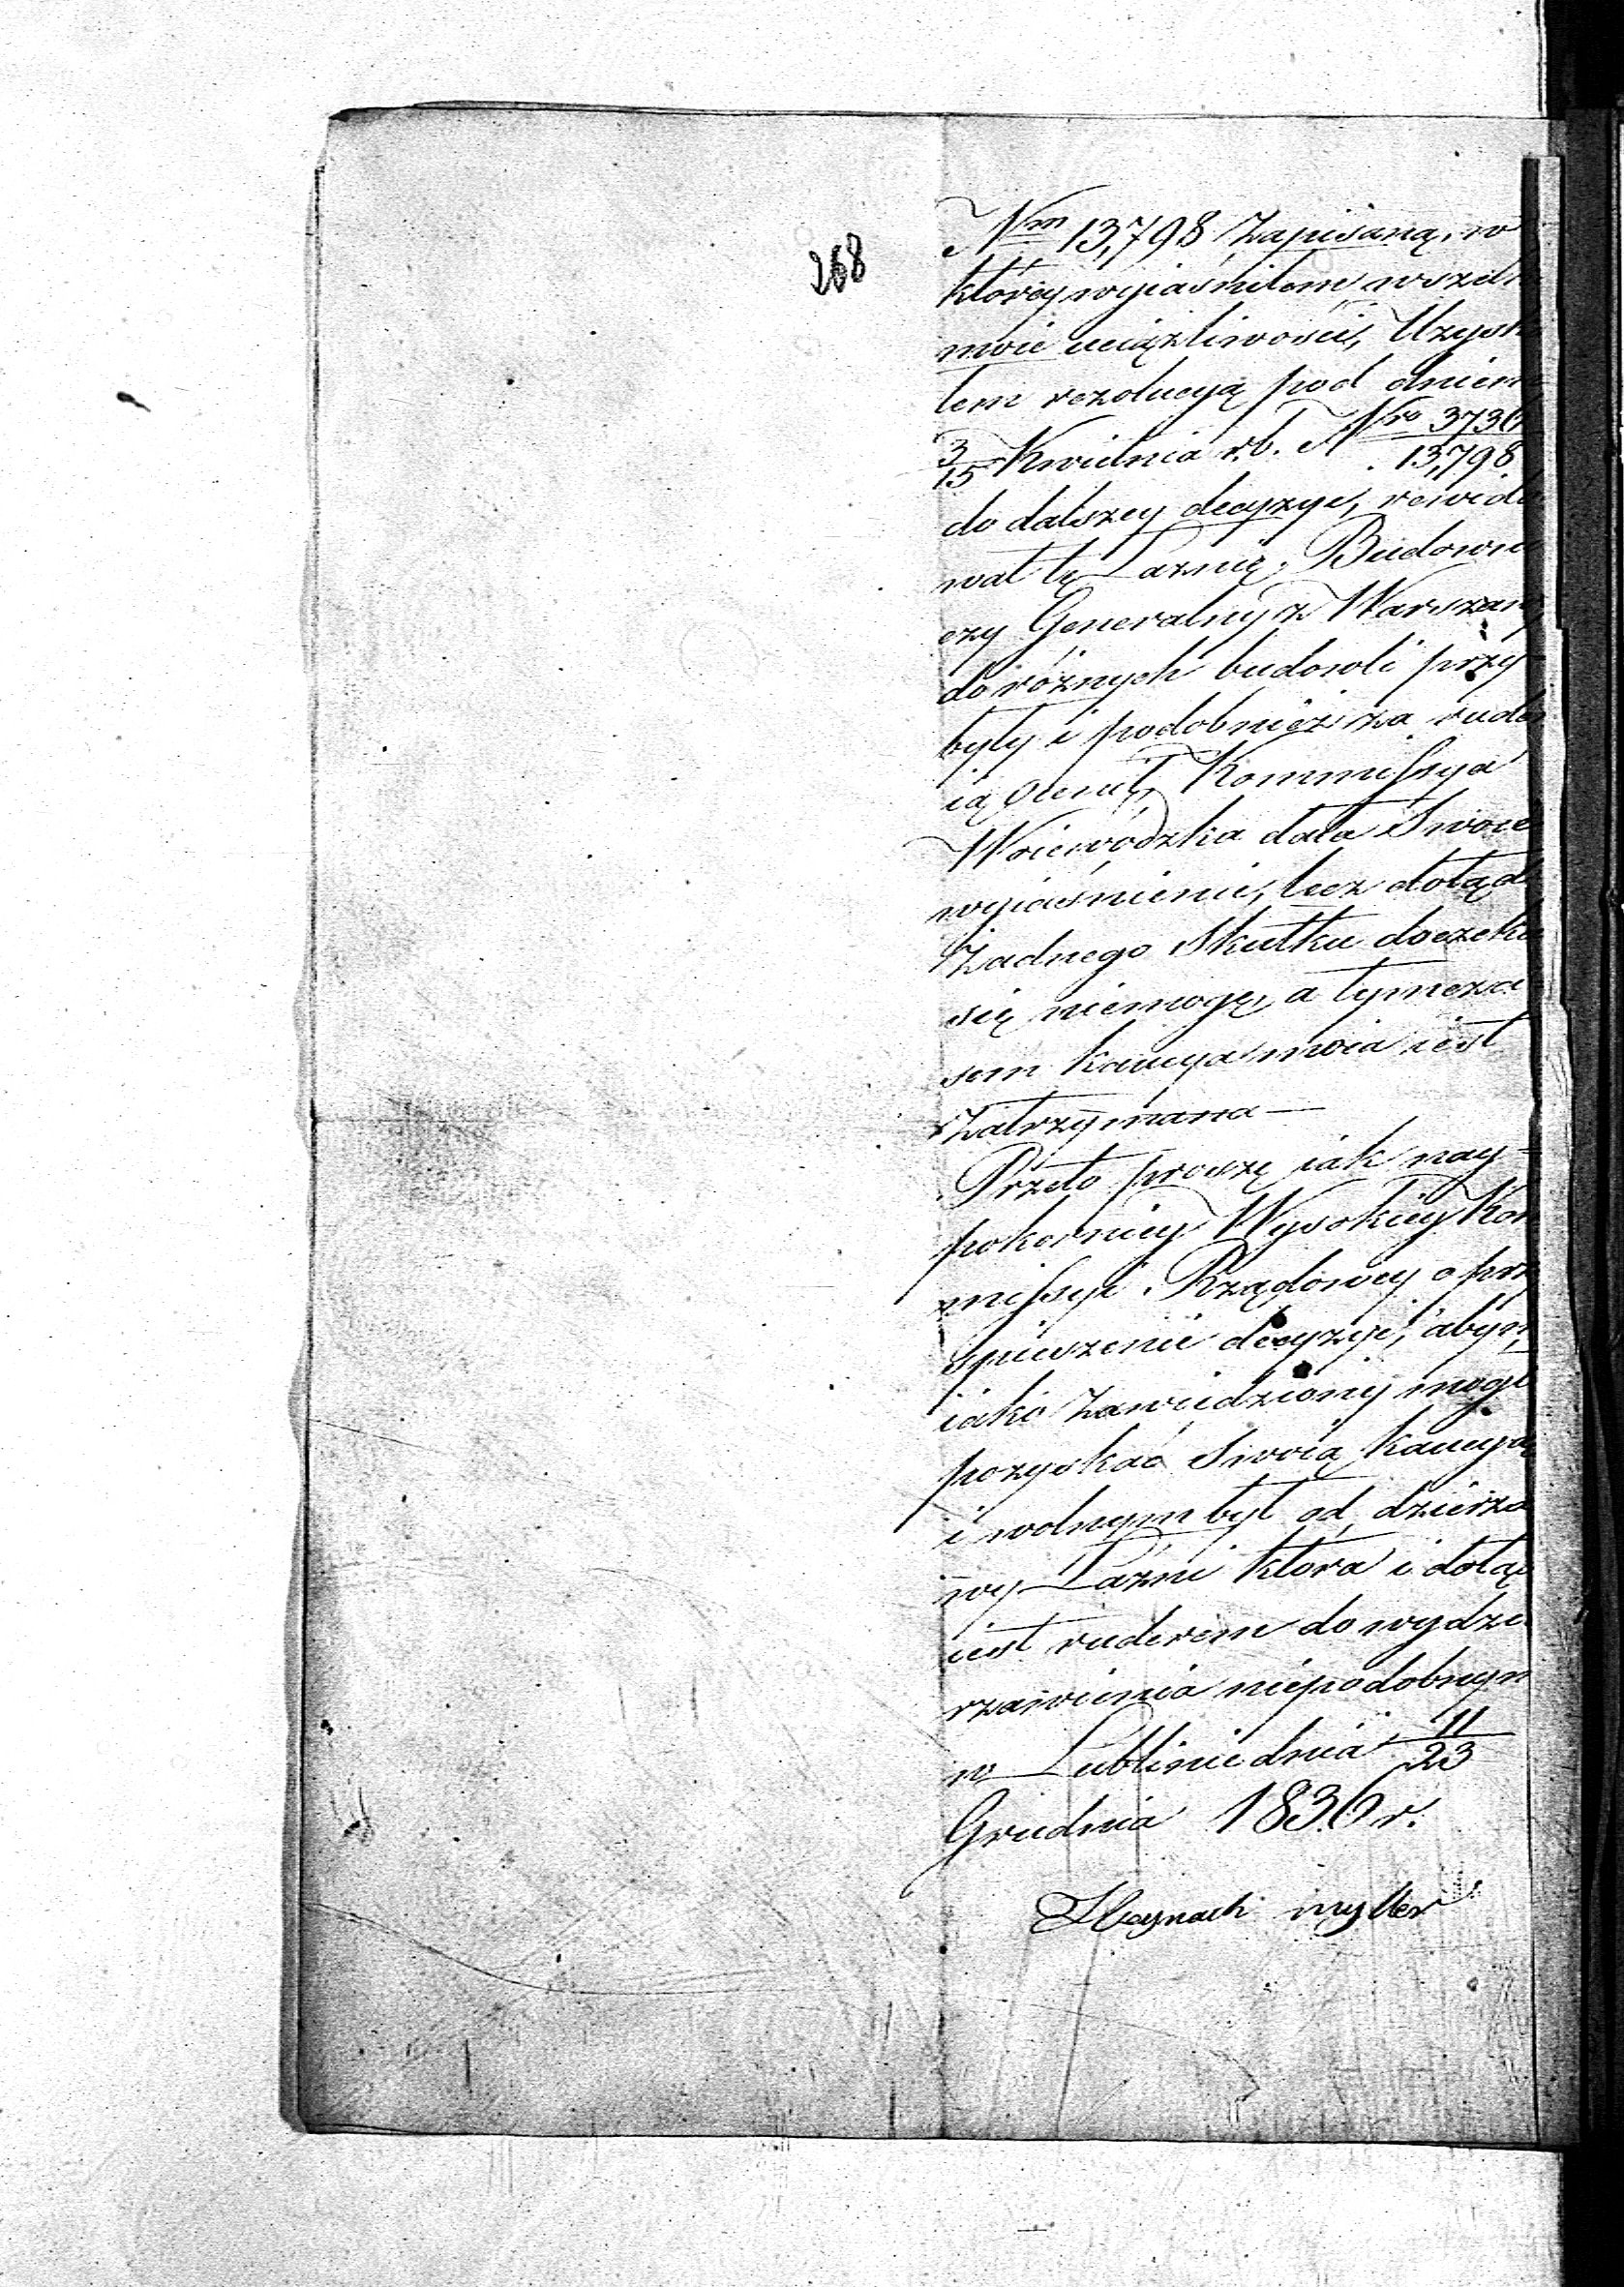 268
Nrm 13,798 Zapisaną, w
którey wyiaśniłem wszelk
moie uciążliwości, Uzysk
łem rezolucyą pod dniem
3/15 Kwietnia r.b. Nro 3736/13,798
do dalszey decyzyi, rewido
wał tę Łaznię, Budowni
czy Generalny z Warszawy
do różnych budowli przy-
były i podobnież za rude
ią ocenił, Kommissya
Woiewódzka dała Swoie
wyiaśnienie, lecz dotąd
Żadnego Skutku doczeka
się niemogę, a tymcza
sem kaucya moia iest
Zatrzymana —
Przeto proszę iak nay-
pokorniey Wysokiey Kom
missyi Rządowey o prz
spieszenie decyzyi, abym
iako Zawiedziony mogł
pozyskać Swoią kaucyą
i wolnym był od dzierża
wy Łaźni która i dotąd
iest ruderem do wydzie
rzawienia niepodobnym
w Lublinie dnia 11/23
Grudnia 1836 r.
myller